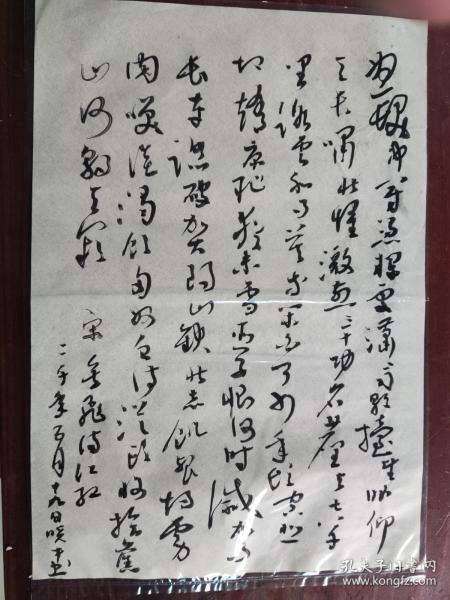 怒髮冲冠凭栏处潇々雨歇抬望眼仰
天长啸壮怀激烈三十功名尘与土八千
里路云和月莫等闲白了少年头空悲
切靖康耻犹未雪臣子恨何时灭驾
长车踏破贺兰山缺壮志饥餐胡虏
肉笑谈渴饮匈奴血待从头收拾旧
山河朝天阙
宋岳飞满江红
二千年五月十九日书
孔夫子旧书网